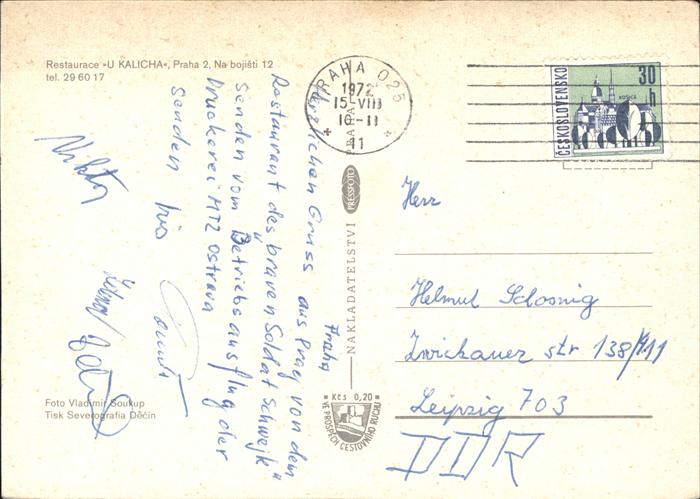 Restaurace »U KALICHA«, Praha 2, Na bojišti 12
tel. 29 60 17
Praha
Herzlichen Gruss aus Prag von dem
Restaurant des braven Soldat "Schwejk"
senden vom Betriebsausflug der
Druckerei MTZ Ostrava
senden
Foto Vladimír Soukup
Tisk Severografia Děčín
NAKLADATELSTVÍ PRESSFOTO PRAHA
Kčs 0,20
VE PROSPĚCH CESTOVNÍHO RUCHU
PRAHA 025
1972
15-VIII
16-II
11
ČESKOSLOVENSKO
30 h
KOŠICE
Herr
Helmut Schosnig
Zwickauer str 138/411
Leipzig 703
DDR